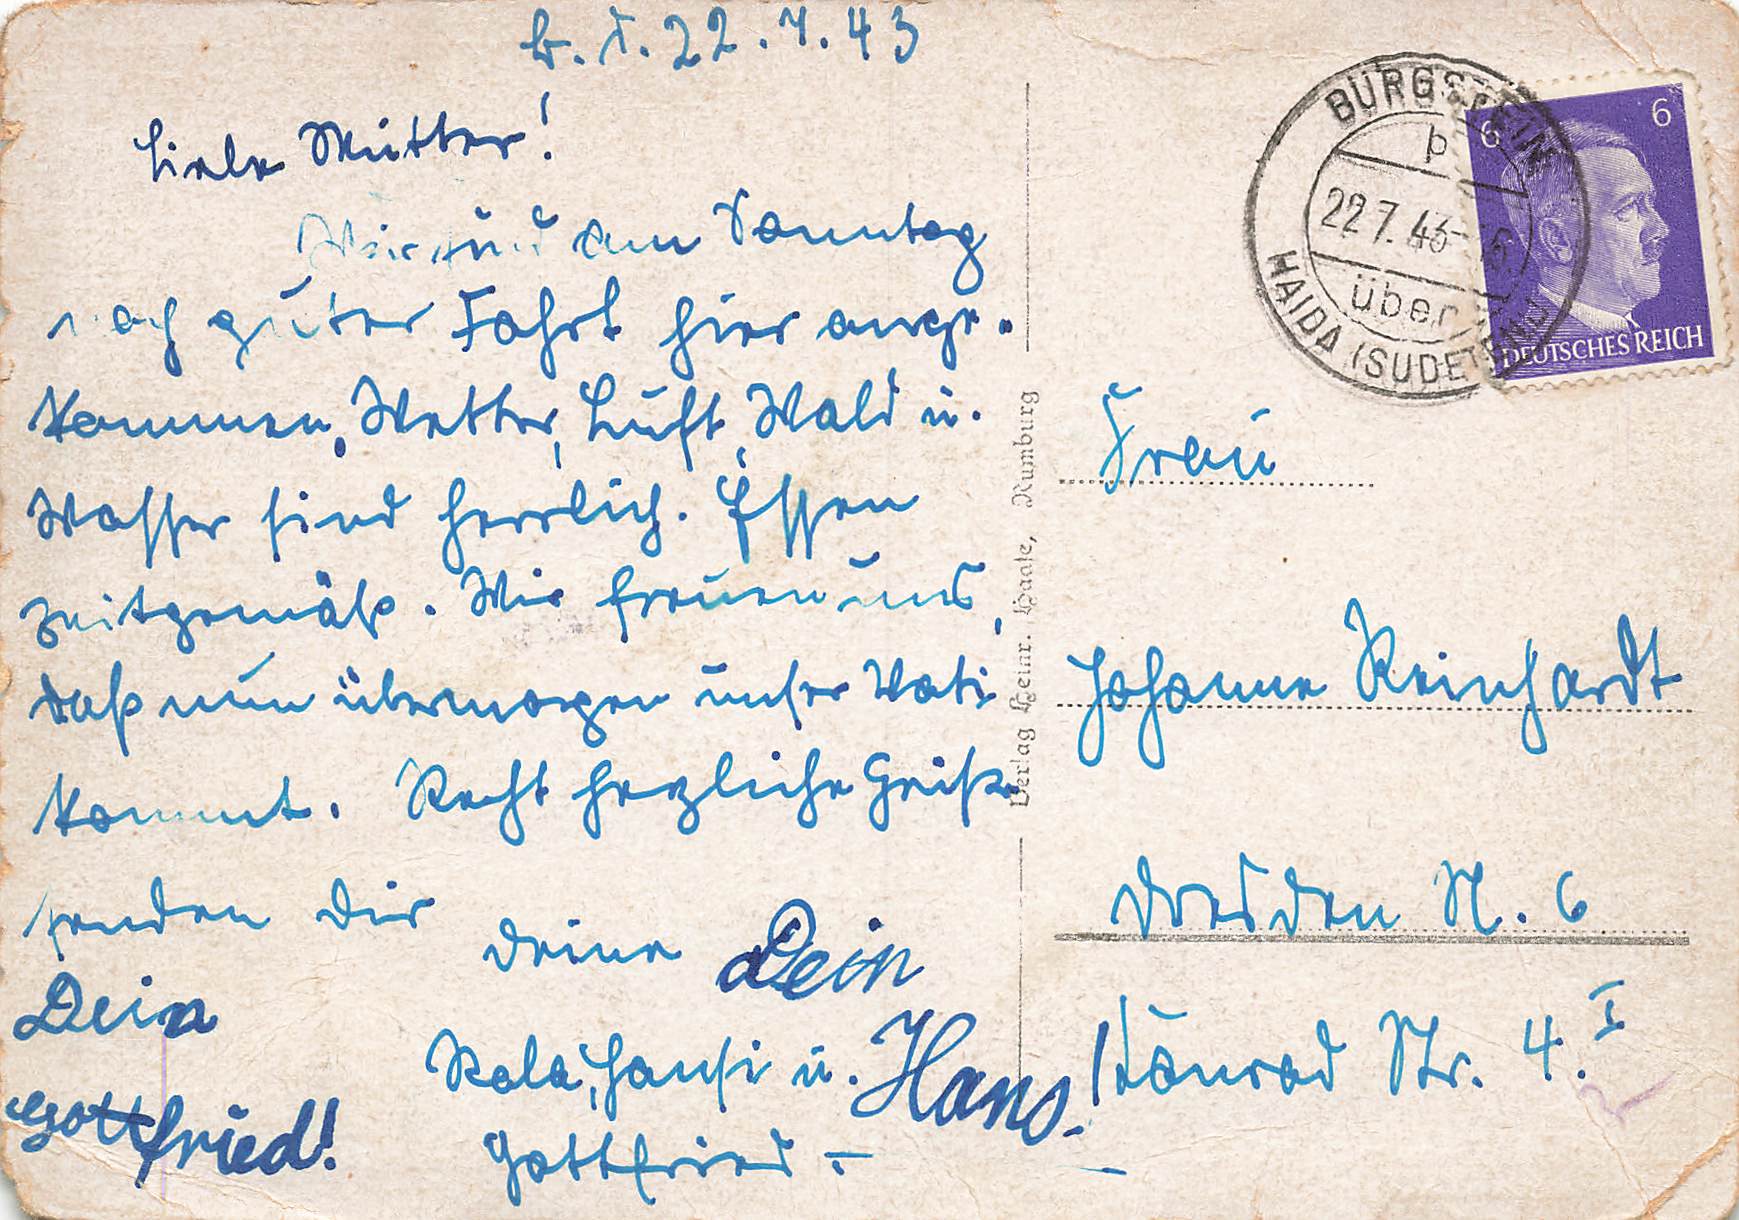 22.7.43
Liebe Mutter!
Wir sind am Sonntag
nach guter Fahrt hier ange-
kommen, Wetter, Luft, Wald u.
Wasser sind herrlich. Essen
zeitgemäß. Wir freuen uns,
daß nun übermorgen unser Vati
kommt. Recht herzliche Grüße
senden Dir
Deine
Dein
Dein
Gottfried!
Hansi u.
Gottfried –
Hans.
BURGSTEIN
b
22.7.43
über
HAIDA (SUDETENL)
6 6
DEUTSCHES REICH
Verlag Heinr. Haase, Rumburg
Frau
Johanne Reinhardt
Dresden N. 6
Konrad Str. 4. I